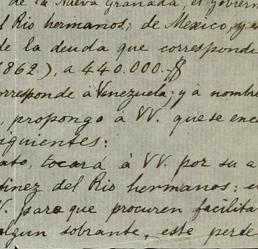 de la Nueva Granada, el gobierno
del Rio hermanos; de Mexico, y
de la deuda que corresponde
1862), a 440.000.
corresponde á Venezuela; y á nombre
, propongo á VV. que se enc
siguientes:
ato, tocará á VV. por su a
tinez del Rio hermanos; e
V. para que procuren facilita
algun sobrante, este perte